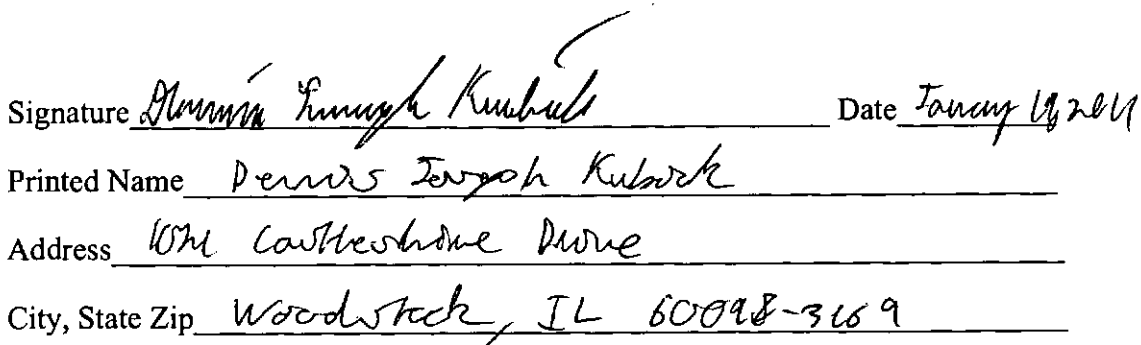 Signature Dennis Joseph Kubick Date January 2011
Printed Name Dennis Joseph Kubick
Address Castleshire Drive
City, State Zip Woodstock, IL 60098-3169